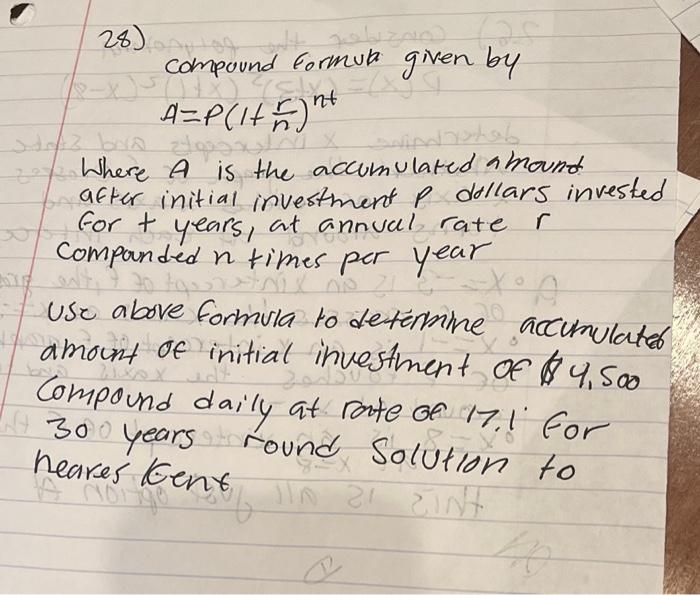 28)
compound formula given by
A=P(1+r/n)^nt
Where A is the accumulated amount
after initial investment P dollars invested
for t years, at annual rate r
compounded n times per year
use above formula to determine accumulated
amount of initial investment of $4,500
Compound daily at rate of 17.1 for
30 years round Solution to
neares Cent